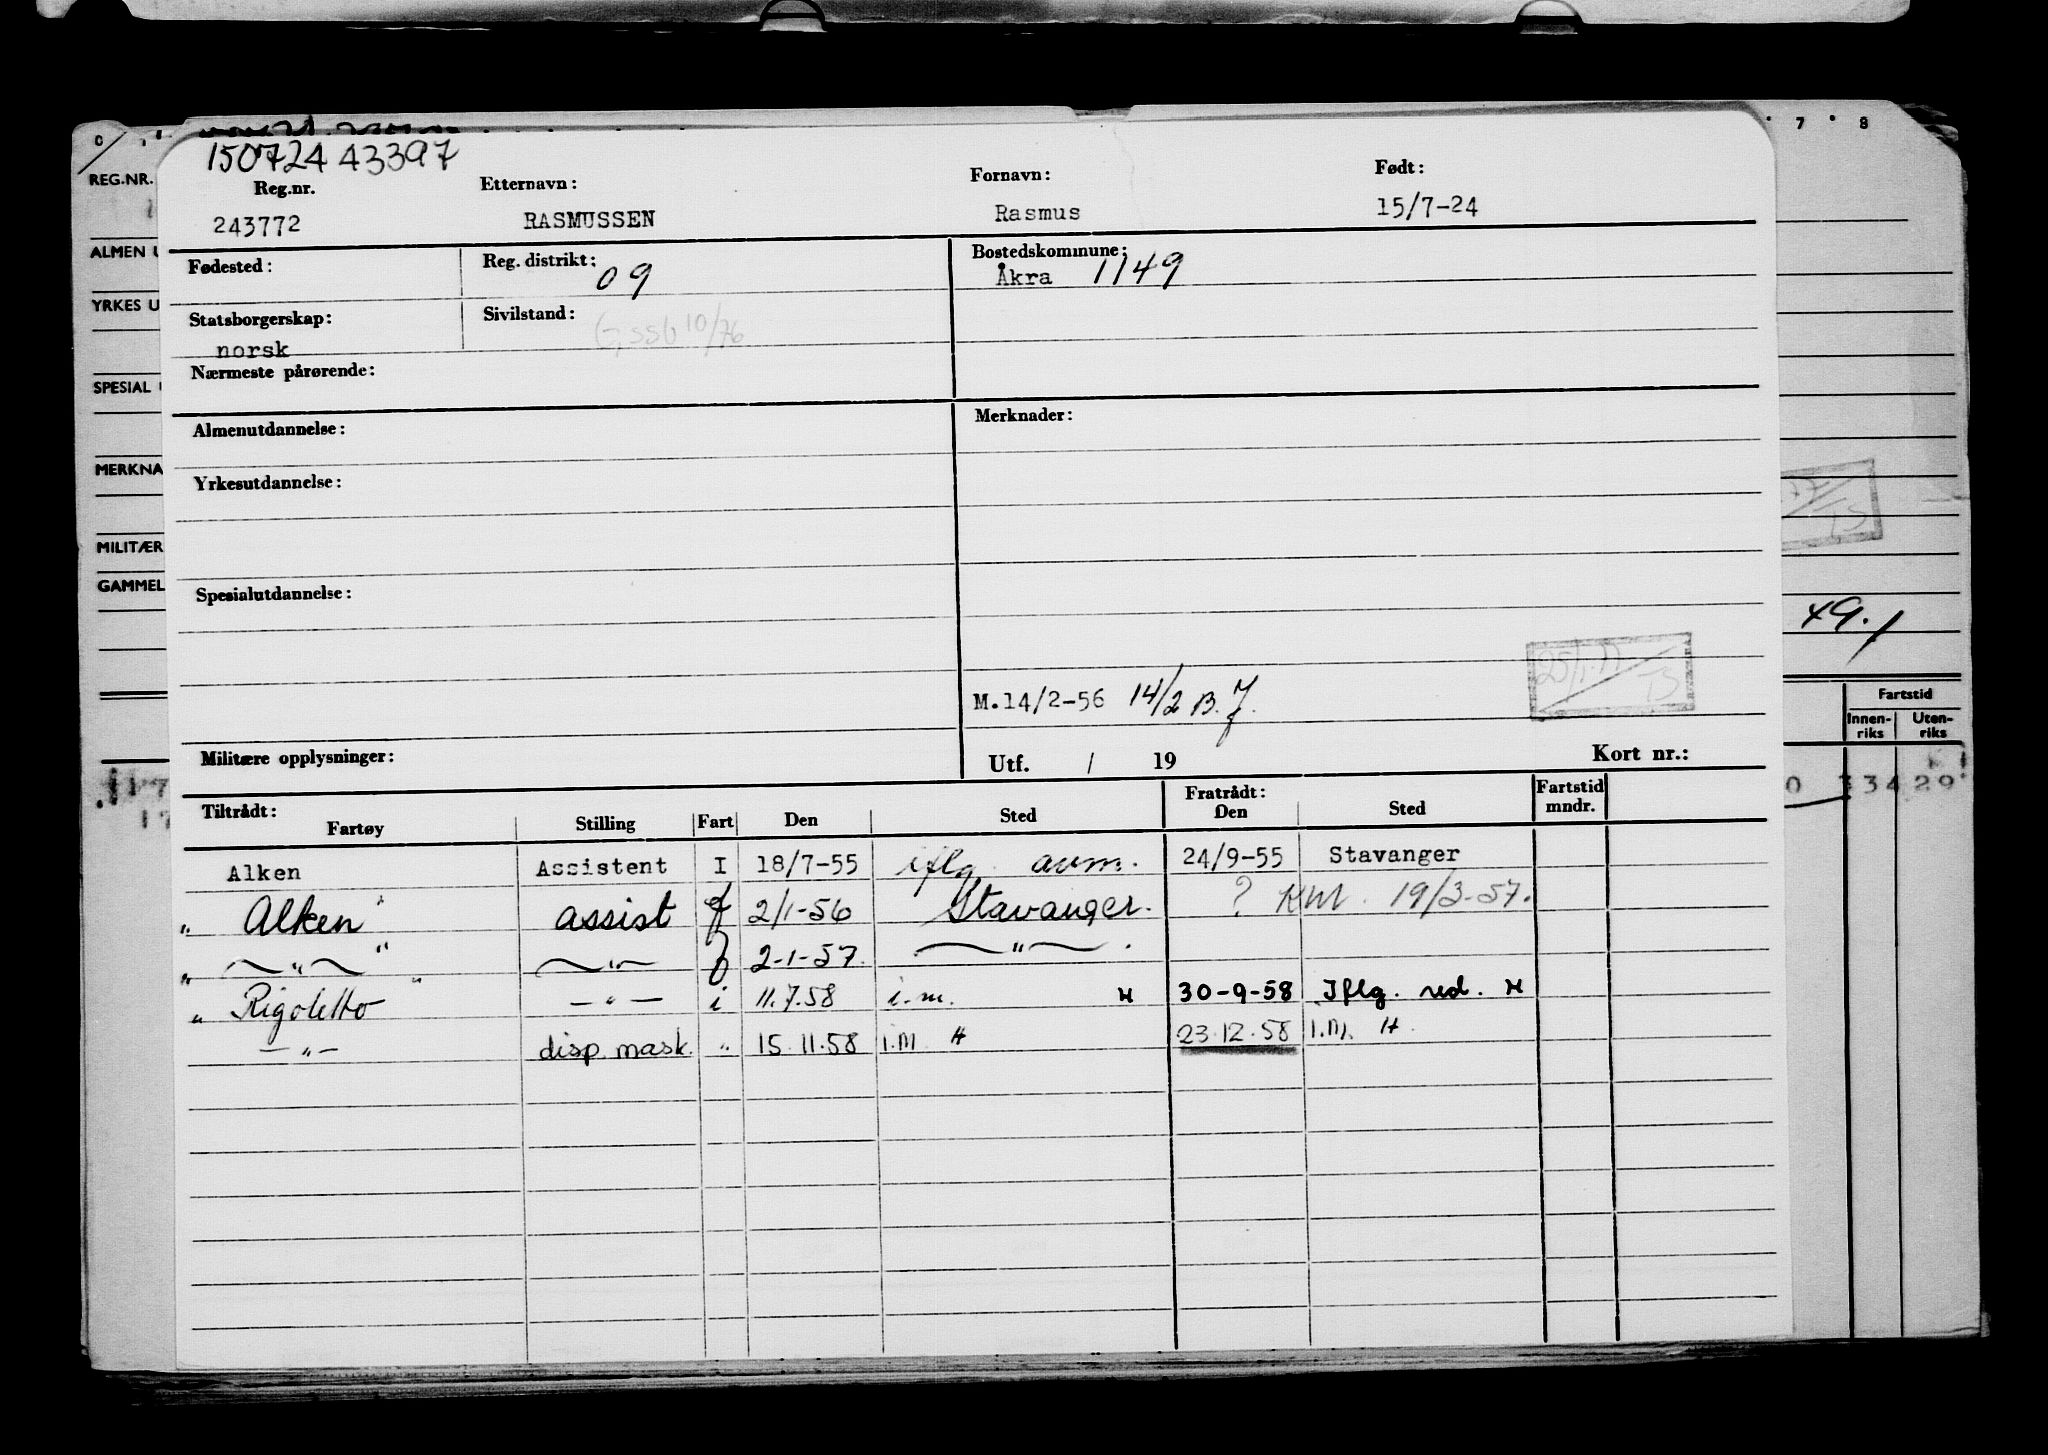 150724 43397
Reg.nr. Etternavn: Fornavn: Født:
243772 RASMUSSEN Rasmus 15/7-24
Fødested: Reg. distrikt: 09 Bostedskommune: Åkra 1149
Statsborgerskap: norsk Sivilstand: G, ssb 10/76
Nærmeste pårørende:
Almenutdannelse: Merknader:
Yrkesutdannelse:
Spesialutdannelse:
25/1-77 TS
M.14/2-56 14/2 B.J.
Militære opplysninger: Utf. / 19 Kort nr.:
Tiltrådt: Fratrådt: Fartstid
Fartøy Stilling Fart Den Sted Den Sted mndr.
Alken Assistent I 18/7-55 iflg. avm. 24/9-55 Stavanger
" Alken" assist 2/1-56 Stavanger. ? 19/3-57.
" — " — " — " — 2-1-57. — " — .
" Rigoletto" — " — i 11.7.58 i.m. H 30-9-58 Iflg. red. H
— " — disp. mask. " 15.11.58 i.m H 23.12.58 i.m. H.
REG.NR.
ALMEN U
YRKES U
SPESIAL
MERKNA
MILITÆR
GAMMEL
0
7 8
TS
49.1
Fartstid
Innen-riks Uten-riks
0 334 29
17